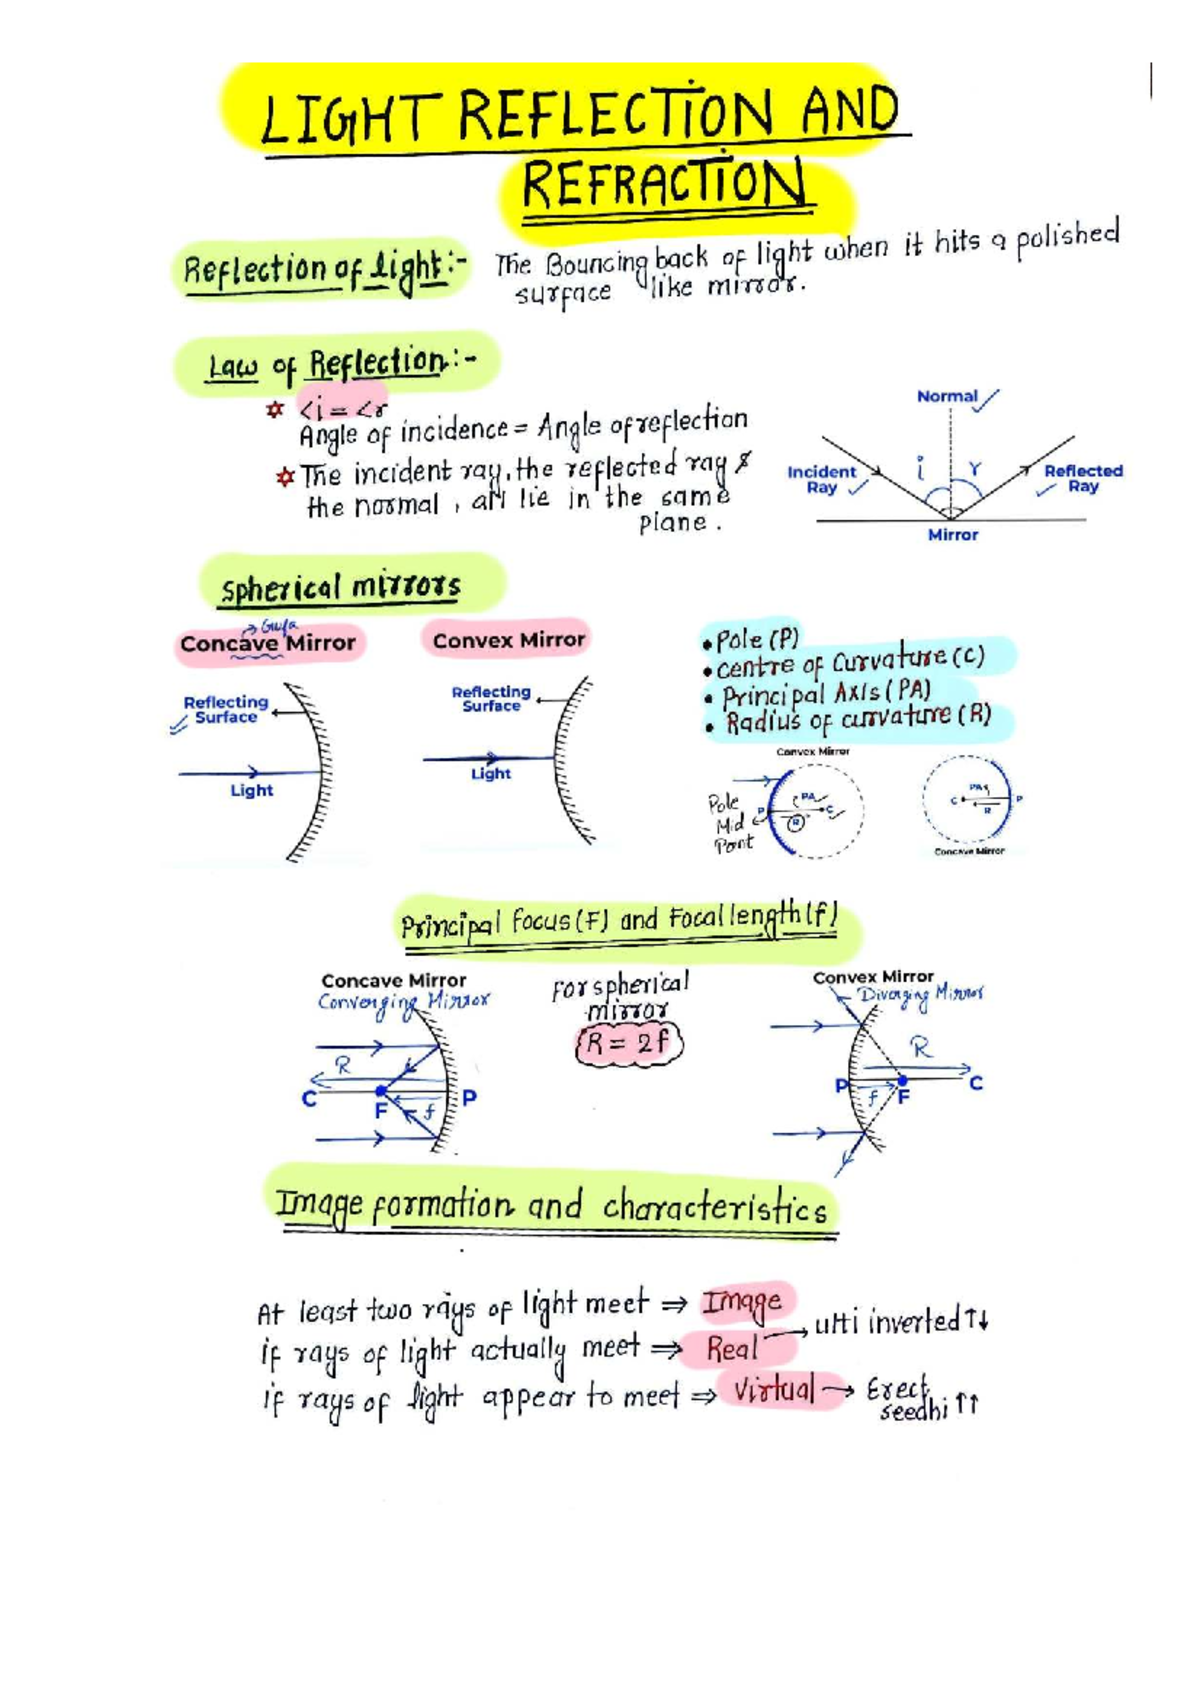 LIGHT REFLECTION AND
REFRACTION
Reflection of light:- The Bouncing back of light when it hits a polished
surface like mirror.
Law of Reflection:-
<i = <r
Angle of incidence = Angle of reflection
The incident ray, the reflected ray &
the normal, all lie in the same
plane.
Normal
Incident
Ray
i
r
Reflected
Ray
Mirror
Spherical mirrors
→ Gufa
Concave Mirror
Reflecting
Surface
Light
Convex Mirror
Reflecting
Surface
Light
• Pole (P)
• centre of Curvature (C)
• Principal Axis (PA)
• Radius of curvature (R)
Convex Mirror
Pole
Mid
Point
P
PA
C
R
PA
C
P
R
Concave Mirror
Principal focus (F) and Focal length (f)
Concave Mirror
Converging Mirror
R
C
F
f
P
For spherical
mirror
R = 2f
Convex Mirror
Diverging Mirror
R
P
f
F
C
Image formation and characteristics
At least two rays of light meet ⇒ Image
if rays of light actually meet ⇒ Real → ulti inverted ↑↓
if rays of light appear to meet ⇒ Virtual → Erect
seedhi ↑↑